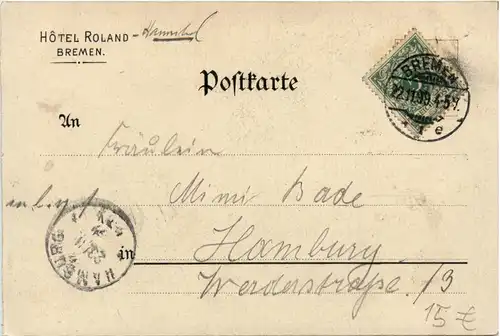 HÔTEL ROLAND -
BREMEN.
Postkarte
BREMEN
22.11.99.4-5 N.
An
Fräulein
Mimi Bade
in Hamburg
HAMBURG
Werderstraße 13
15 €